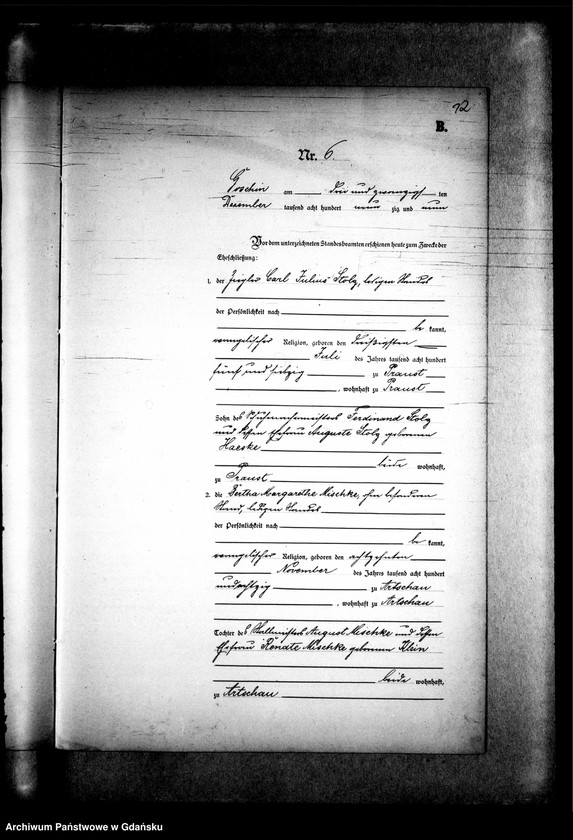 12
B.
Nr. 6.
Goschin am drei und zwanzigsten
Dezember tausend acht hundert neun zig und neun
Vor dem unterzeichneten Standesbeamten erschienen heute zum Zwecke der
Eheschließung:
1. der Ziegler Carl Julius Stolz, ledigen Standes
der Persönlichkeit nach
be kannt,
evangelischer Religion, geboren den dreißigsten
Juli des Jahres tausend acht hundert
fünf und siebzig zu Praust
, wohnhaft zu Praust
Sohn des Schuhmachermeisters Ferdinand Stolz
und dessen Ehefrau Auguste Stolz geborenen
beide wohnhaft,
zu Praust
2. die Bertha Margarethe Mischke, ohne besonderen
Stand, ledigen Standes
der Persönlichkeit nach
be kannt,
evangelischer Religion, geboren den achtzehnten
November des Jahres tausend acht hundert
und achtzig zu Artschau
, wohnhaft zu Artschau
Tochter des August Mischke und dessen
Ehefrau Renate Mischke geborenen Klein
beide wohnhaft,
zu Artschau
Archiwum Państwowe w Gdańsku